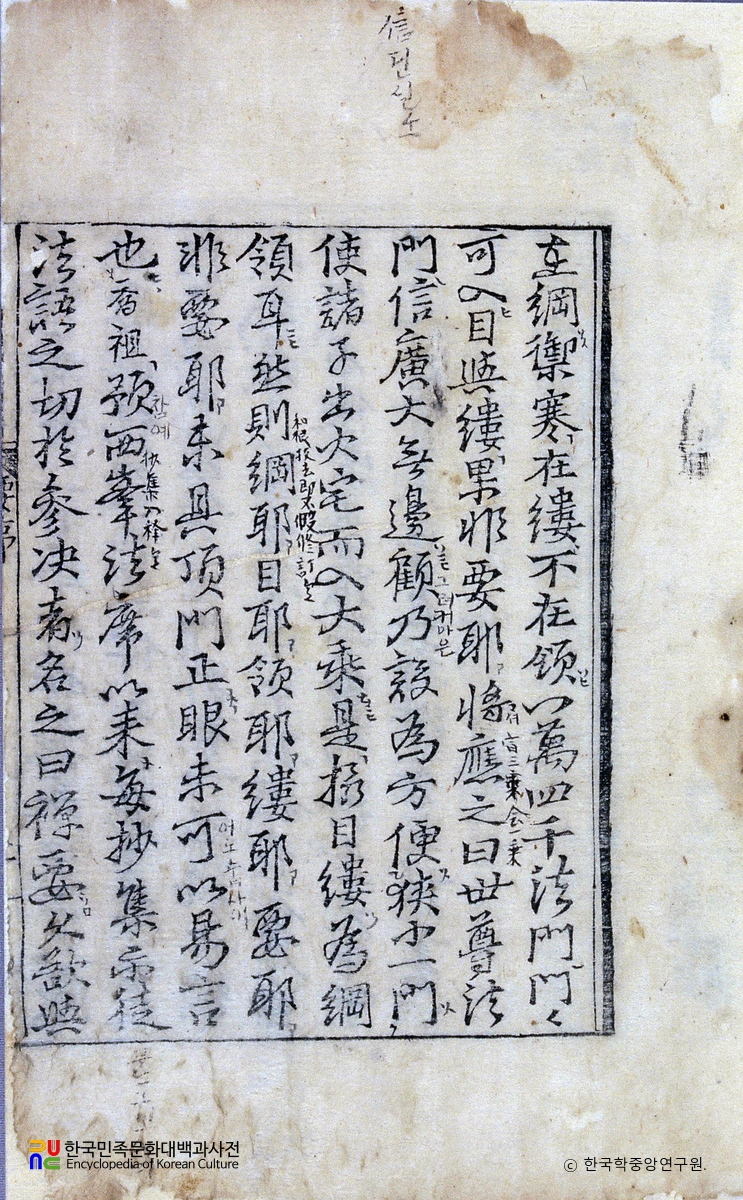 在綱禦寒在縷不在領八萬四千法門門〻
可入目與縷果非要耶將應之曰世尊法
門信廣大無邊顧乃設為方便狹小一門
使諸子出火宅而入大乘是攝目縷為綱
領耳然則綱耶目耶領耶縷耶要耶
非要耶未具頂門正眼未可以易言
也喬祖預西峯法席以来每抄集示徒
法語之切於參决者名之曰禪要久欲與
한국민족문화대백과사전
Encyclopedia of Korean Culture
© 한국학중앙연구원.